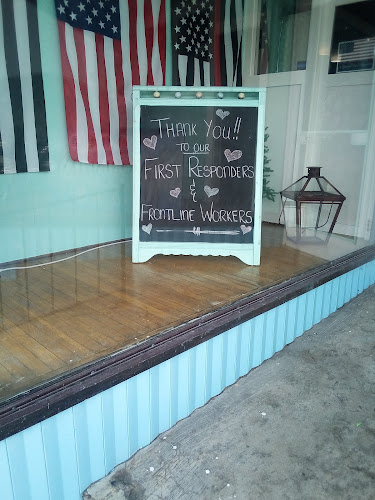 Thank You!!
to our
First Responders
&
Frontline Workers